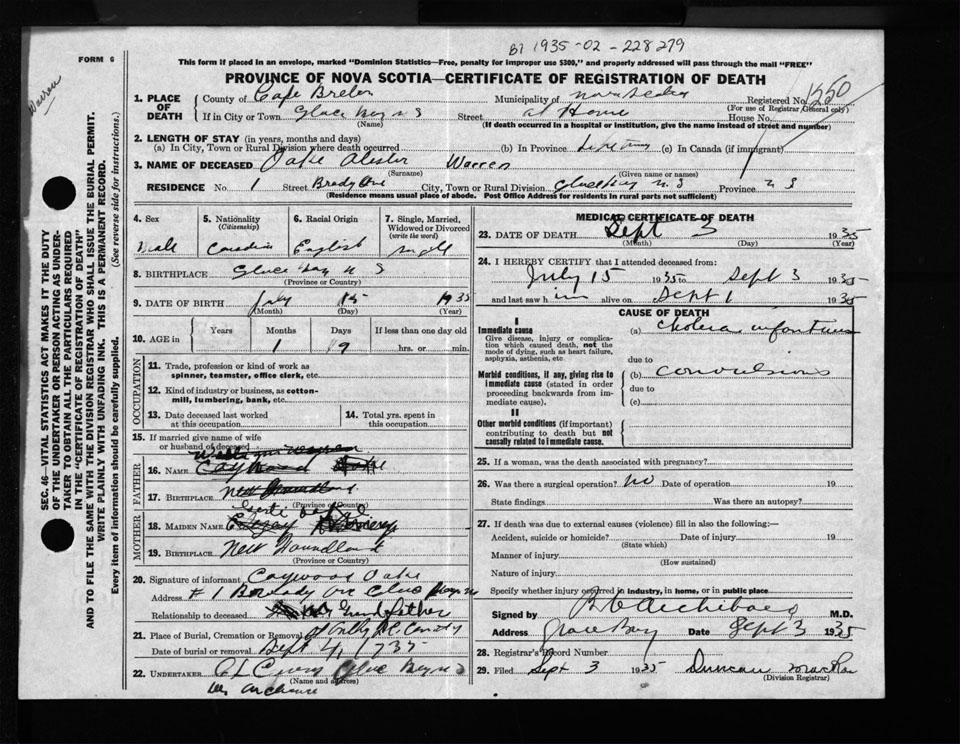 BI 1935-02-228279
FORM 6
This form if placed in an envelope, marked "Dominion Statistics—Free, penalty for improper use $300," and properly addressed will pass through the mail "FREE"
PROVINCE OF NOVA SCOTIA—CERTIFICATE OF REGISTRATION OF DEATH
Warren
1. PLACE OF DEATH
County of Cape Breton
Municipality of
Registered No. 1550
(For use of Registrar General only)
If in City or Town Glace Bay N S
(Name)
Street at Home
House No.
(If death occurred in a hospital or institution, give the name instead of street and number)
2. LENGTH OF STAY (in years, months and days)
(a) In City, Town or Rural Division where death occurred
(b) In Province
(c) In Canada (if immigrant)
3. NAME OF DECEASED Oake Warren
(Surname)
(Given name or names)
RESIDENCE No. 1 Street
City, Town or Rural Division Glace Bay N.S
Province N S
(Residence means usual place of abode. Post Office Address for residents in rural parts not sufficient)
SEC. 46—VITAL STATISTICS ACT MAKES IT THE DUTY
OF THE UNDERTAKER OR PERSON ACTING AS UNDER-
TAKER TO OBTAIN ALL THE PARTICULARS REQUIRED
IN THE "CERTIFICATE OF REGISTRATION OF DEATH"
AND TO FILE THE SAME WITH THE DIVISION REGISTRAR WHO SHALL ISSUE THE BURIAL PERMIT.
WRITE PLAINLY WITH UNFADING INK. THIS IS A PERMANENT RECORD.
Every item of information should be carefully supplied. (See reverse side for instructions.)
4. Sex
Male
5. Nationality
(Citizenship)
Canadian
6. Racial Origin
English
7. Single, Married, Widowed or Divorced
(write the word)
single
8. BIRTHPLACE Glace Bay N S
(Province or Country)
9. DATE OF BIRTH July 15 1935
(Month) (Day) (Year)
10. AGE in
Years Months Days If less than one day old
1 19 hrs. or min.
OCCUPATION
11. Trade, profession or kind of work as
spinner, teamster, office clerk, etc.
12. Kind of industry or business, as cotton-
mill, lumbering, bank, etc.
13. Date deceased last worked
at this occupation
14. Total yrs. spent in
this occupation
15. If married give name of wife
or husband of deceased
FATHER
16. NAME
17. BIRTHPLACE Newfoundland
(Province or Country)
MOTHER
18. MAIDEN NAME
19. BIRTHPLACE Newfoundland
(Province or Country)
20. Signature of informant Caywood Oake
Address # 1
Relationship to deceased Grandfather
21. Place of Burial, Cremation or Removal
Date of burial or removal Sept 4, 1935
22. UNDERTAKER Glace Bay N S
(Name and address)
MEDICAL CERTIFICATE OF DEATH
23. DATE OF DEATH Sept 3 1935
(Month) (Day) (Year)
24. I HEREBY CERTIFY that I attended deceased from:
July 15 1935 to Sept 3 1935
and last saw him alive on Sept 1 1935
CAUSE OF DEATH
I
Immediate cause
Give disease, injury or complica-
tion which caused death, not the
mode of dying, such as heart failure,
asphyxia, asthenia, etc
(a) cholera infantum
due to
Morbid conditions, if any, giving rise to
immediate cause (stated in order
proceeding backwards from im-
mediate cause).
(b) convulsions
due to
(c)
II
Other morbid conditions (if important)
contributing to death but not
causally related to immediate cause.
25. If a woman, was the death associated with pregnancy?
26. Was there a surgical operation? no Date of operation 19
State findings Was there an autopsy?
27. If death was due to external causes (violence) fill in also the following:—
Accident, suicide or homicide? Date of injury 19
(State which)
Manner of injury
(How sustained)
Nature of injury
Specify whether injury occurred in industry, in home, or in public place
Signed by Archibald M.D.
Address Glace Bay Date Sept 3 1935
28. Registrar's Record Number
29. Filed Sept 3 1935 Duncan
(Division Registrar)